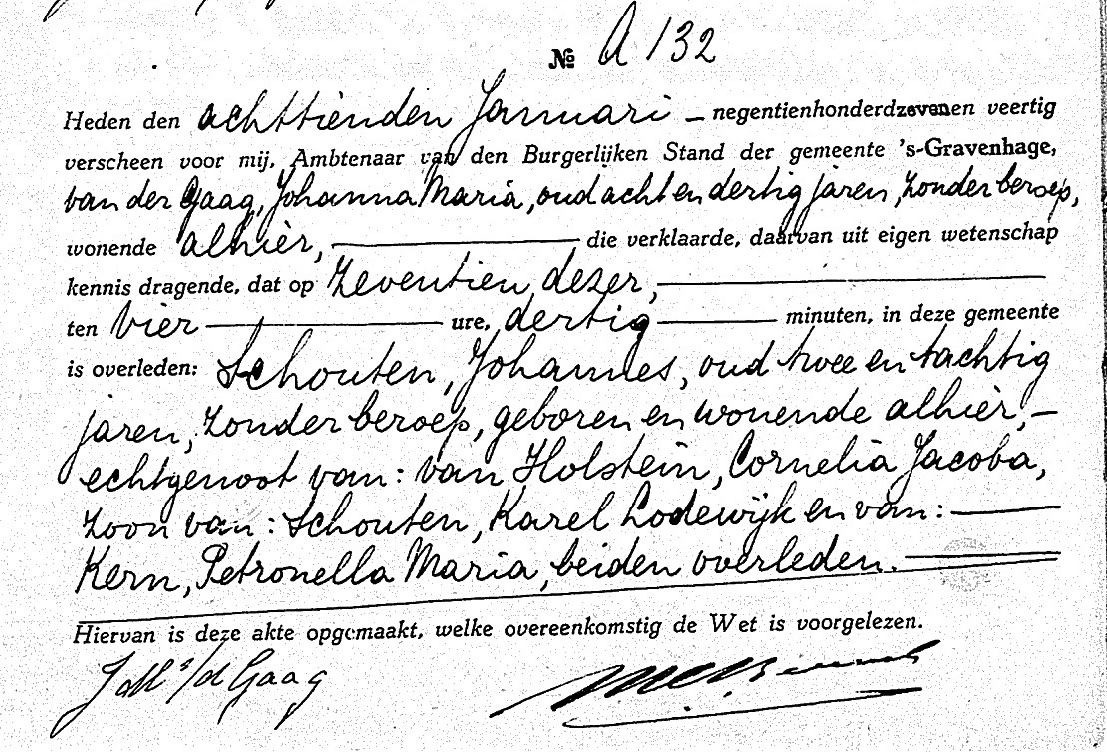 № A 132
Heden den achttienden Januari - negentienhonderdzevenen veertig
verscheen voor mij, Ambtenaar van den Burgerlijken Stand der gemeente 's-Gravenhage,
van der Gaag, Johanna Maria, oud acht en dertig jaren, zonder beroep,
wonende alhier, die verklaarde, daarvan uit eigen wetenschap
kennis dragende, dat op zeventien dezer,
ten vier ure, dertig minuten, in deze gemeente
is overleden: Schouten, Johannes, oud twee en tachtig
jaren, zonder beroep, geboren en wonende alhier, -
echtgenoot van: van Holstein, Cornelia Jacoba,
zoon van: Schouten, Karel Lodewijk en van:
Kern, Petronella Maria, beiden overleden.
Hiervan is deze akte opgemaakt, welke overeenkomstig de Wet is voorgelezen.
Gaag